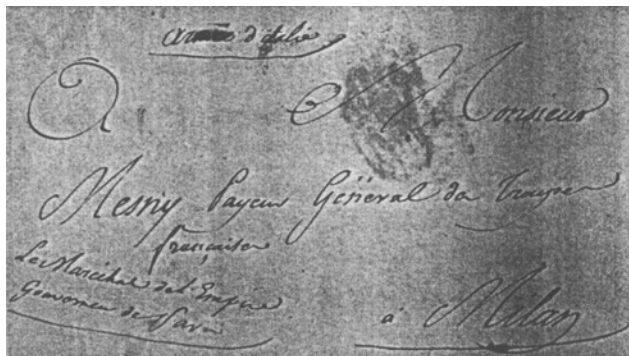 Armée d'Italie
A Monsieur
Mesny Payeur Général des Troupes
françaises
Le Maréchal de l'Empire
Gouverneur de Paris
à Milan